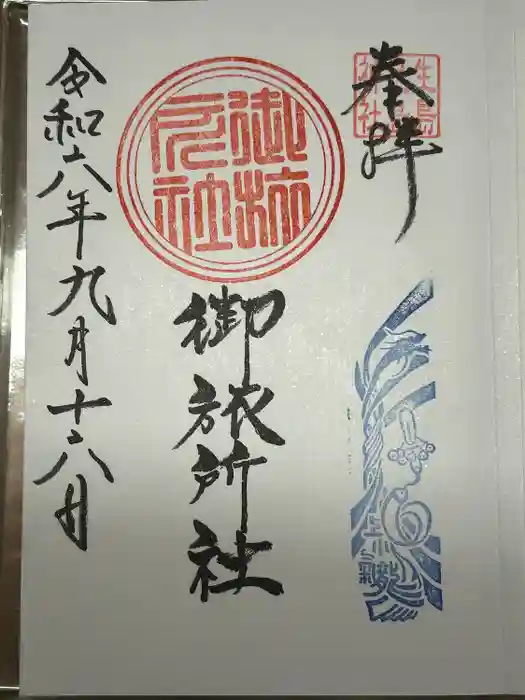 奉拝
生島
御旅所社
御旅所社
令和六年九月十八日